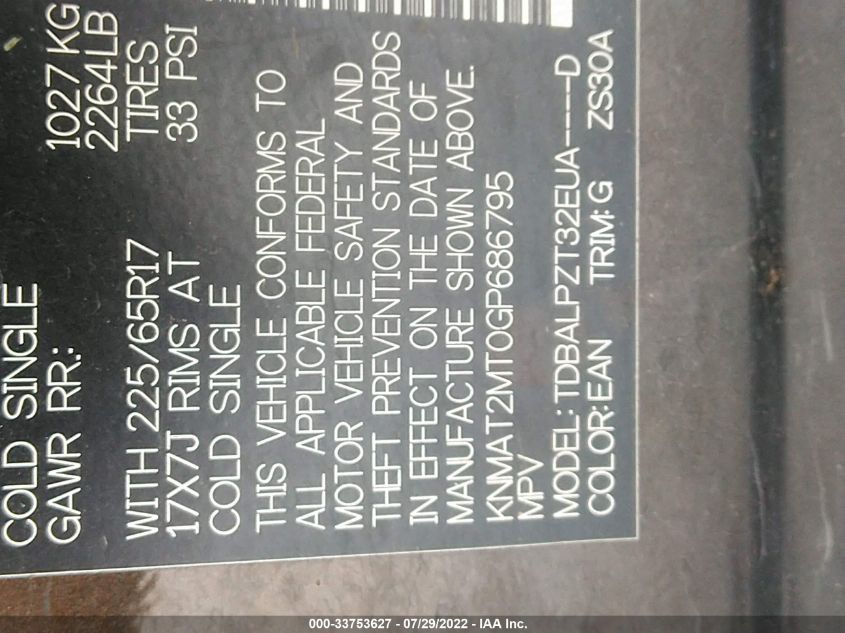 COLD SINGLE
GAWR RR.: 1027 KG
2264LB
WITH 225/65R17 TIRES
17X7J RIMS AT 33 PSI
COLD SINGLE
THIS VEHICLE CONFORMS TO
ALL APPLICABLE FEDERAL
MOTOR VEHICLE SAFETY AND
THEFT PREVENTION STANDARDS
IN EFFECT ON THE DATE OF
MANUFACTURE SHOWN ABOVE.
KNMAT2MT0GP686795
MPV
MODEL: TDBALPZT32EUA----D
COLOR:EAN TRIM: G ZS30A
000-33753627 - 07/29/2022 - IAA Inc.